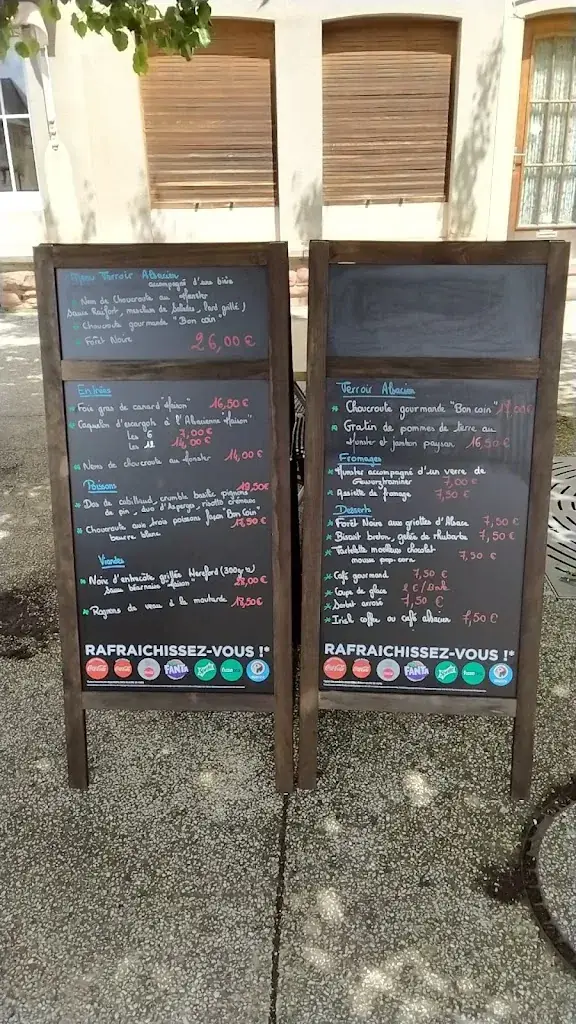 Terroir Alsacien
accompagné d'une bière
Nem de Choucroute au Munster
Sauce Raifort, mesclun de salades, lard grillé)
Choucroute gourmande "Bon coin"
Forêt Noire 26,00 €
Entrées
Fois gras de canard "Maison" 16,50 €
Caquelon d'escargots à l'Alsacienne "Maison"
Les 6 7,00 €
Les 12 14,00 €
Nems de choucroute au Munster 14,00 €
Poissons
19,50 €
Dos de cabillaud, crumble basilic pignons
de pin, duo d'Asperges, risotto crémeux
Choucroute aux trois poissons façon "Bon Coin"
beurre blanc 17,50 €
Viandes
Noix d'entrecôte grillée Hereford (300gr)
Sauce béarnaise "Maison" 28,00 €
Rognons de veau à la moutarde 18,50 €
RAFRAICHISSEZ-VOUS !*
Coca-Cola
Coca-Cola
FANTA
fuze tea
Terroir Alsacien
Choucroute gourmande "Bon coin"
Gratin de pommes de terre au
Munster et jambon paysan 16,50 €
Fromages
Munster accompagné d'un verre de
Gewurztraminer 7,00 €
Assiette de fromage 7,50 €
Desserts
Forêt Noire aux griottes d'Alsace 7,50 €
Biscuit breton, gelée de rhubarbe 7,50 €
Tartelette moelleux chocolat
mousse pop-corn 7,50 €
Café gourmand 7,50 €
Coupe de glace 2 €/Boule
Sorbet arrosé 7,50 €
Irish coffee ou café alsacien 7,50 €
RAFRAICHISSEZ-VOUS !*
Coca-Cola
Coca-Cola
FANTA
fuze tea